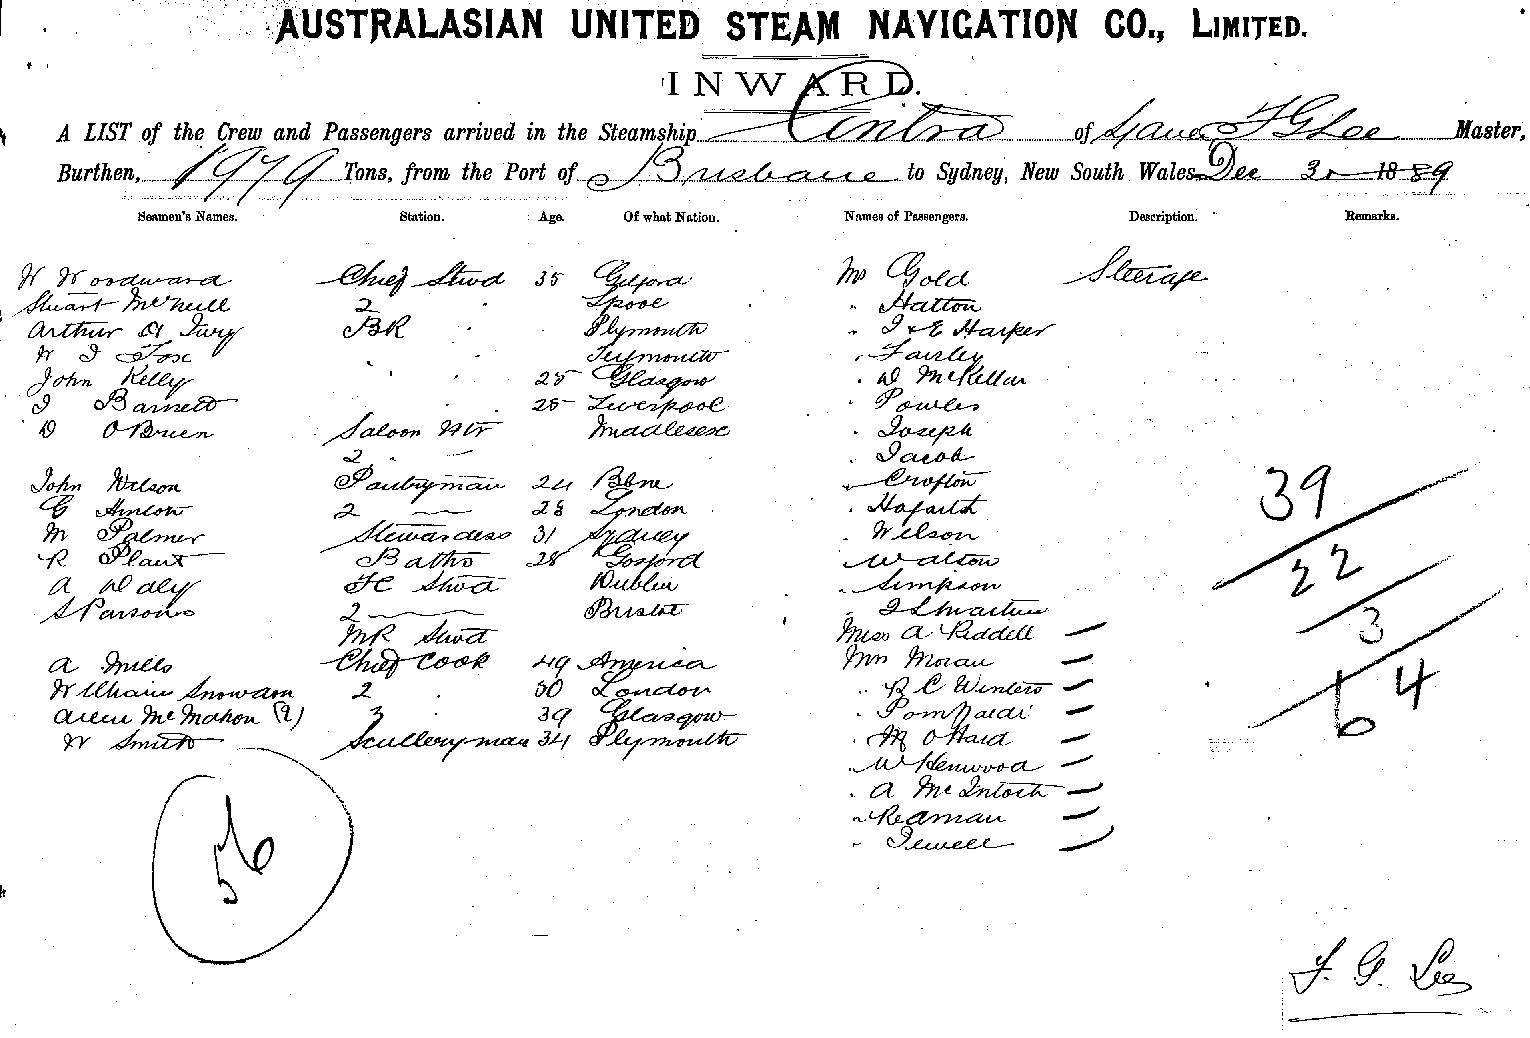 AUSTRALASIAN UNITED STEAM NAVIGATION CO., LIMITED.
INWARD.
A LIST of the Crew and Passengers arrived in the Steamship Cintra of F G Lee Master,
Burthen, 1979 Tons, from the Port of Brisbane to Sydney, New South Wales Dec 30 1889
Seamen's Names. Station. Age. Of what Nation. Names of Passengers. Description. Remarks.
W Woodward Chief Stwd 35 Gilford Mr Gold Steerage
Stuart McNeill 2 " Lpool " Hatton
Arthur BK " Plymouth " J & E Harper
W J Fox " " Teymouth " Fairley
John Kelly " " 25 Glasgow " D McKellar
J Barnett " " 25 Liverpool " Powles
D OBrien Saloon Wtr Middlesex " Joseph
2 " — " Jacob
John Wilson Pantryman 24 " Crofton
G 2 — 28 London " Hogarth
M Palmer Stewardess 31 Sydney " Wilson
R Plant Baths 28 Gosford " Walton
A Daly FC Stwd Dublin " Simpson
S Parsons 2 — Bristol " J S Martin
MR Stwd Miss A Riddell —
A Mills Chief Cook 49 America Mrs Moran —
William Snowdon 2 " 30 London " R C Winters —
McMahon (2) 3 " 39 Glasgow " —
W Smith Scullery man 34 Plymouth " M OHara —
" W Henwood —
" A McIntosh —
" Redman —
" Jewell —
39
22
3
64
56
F. G. Lee